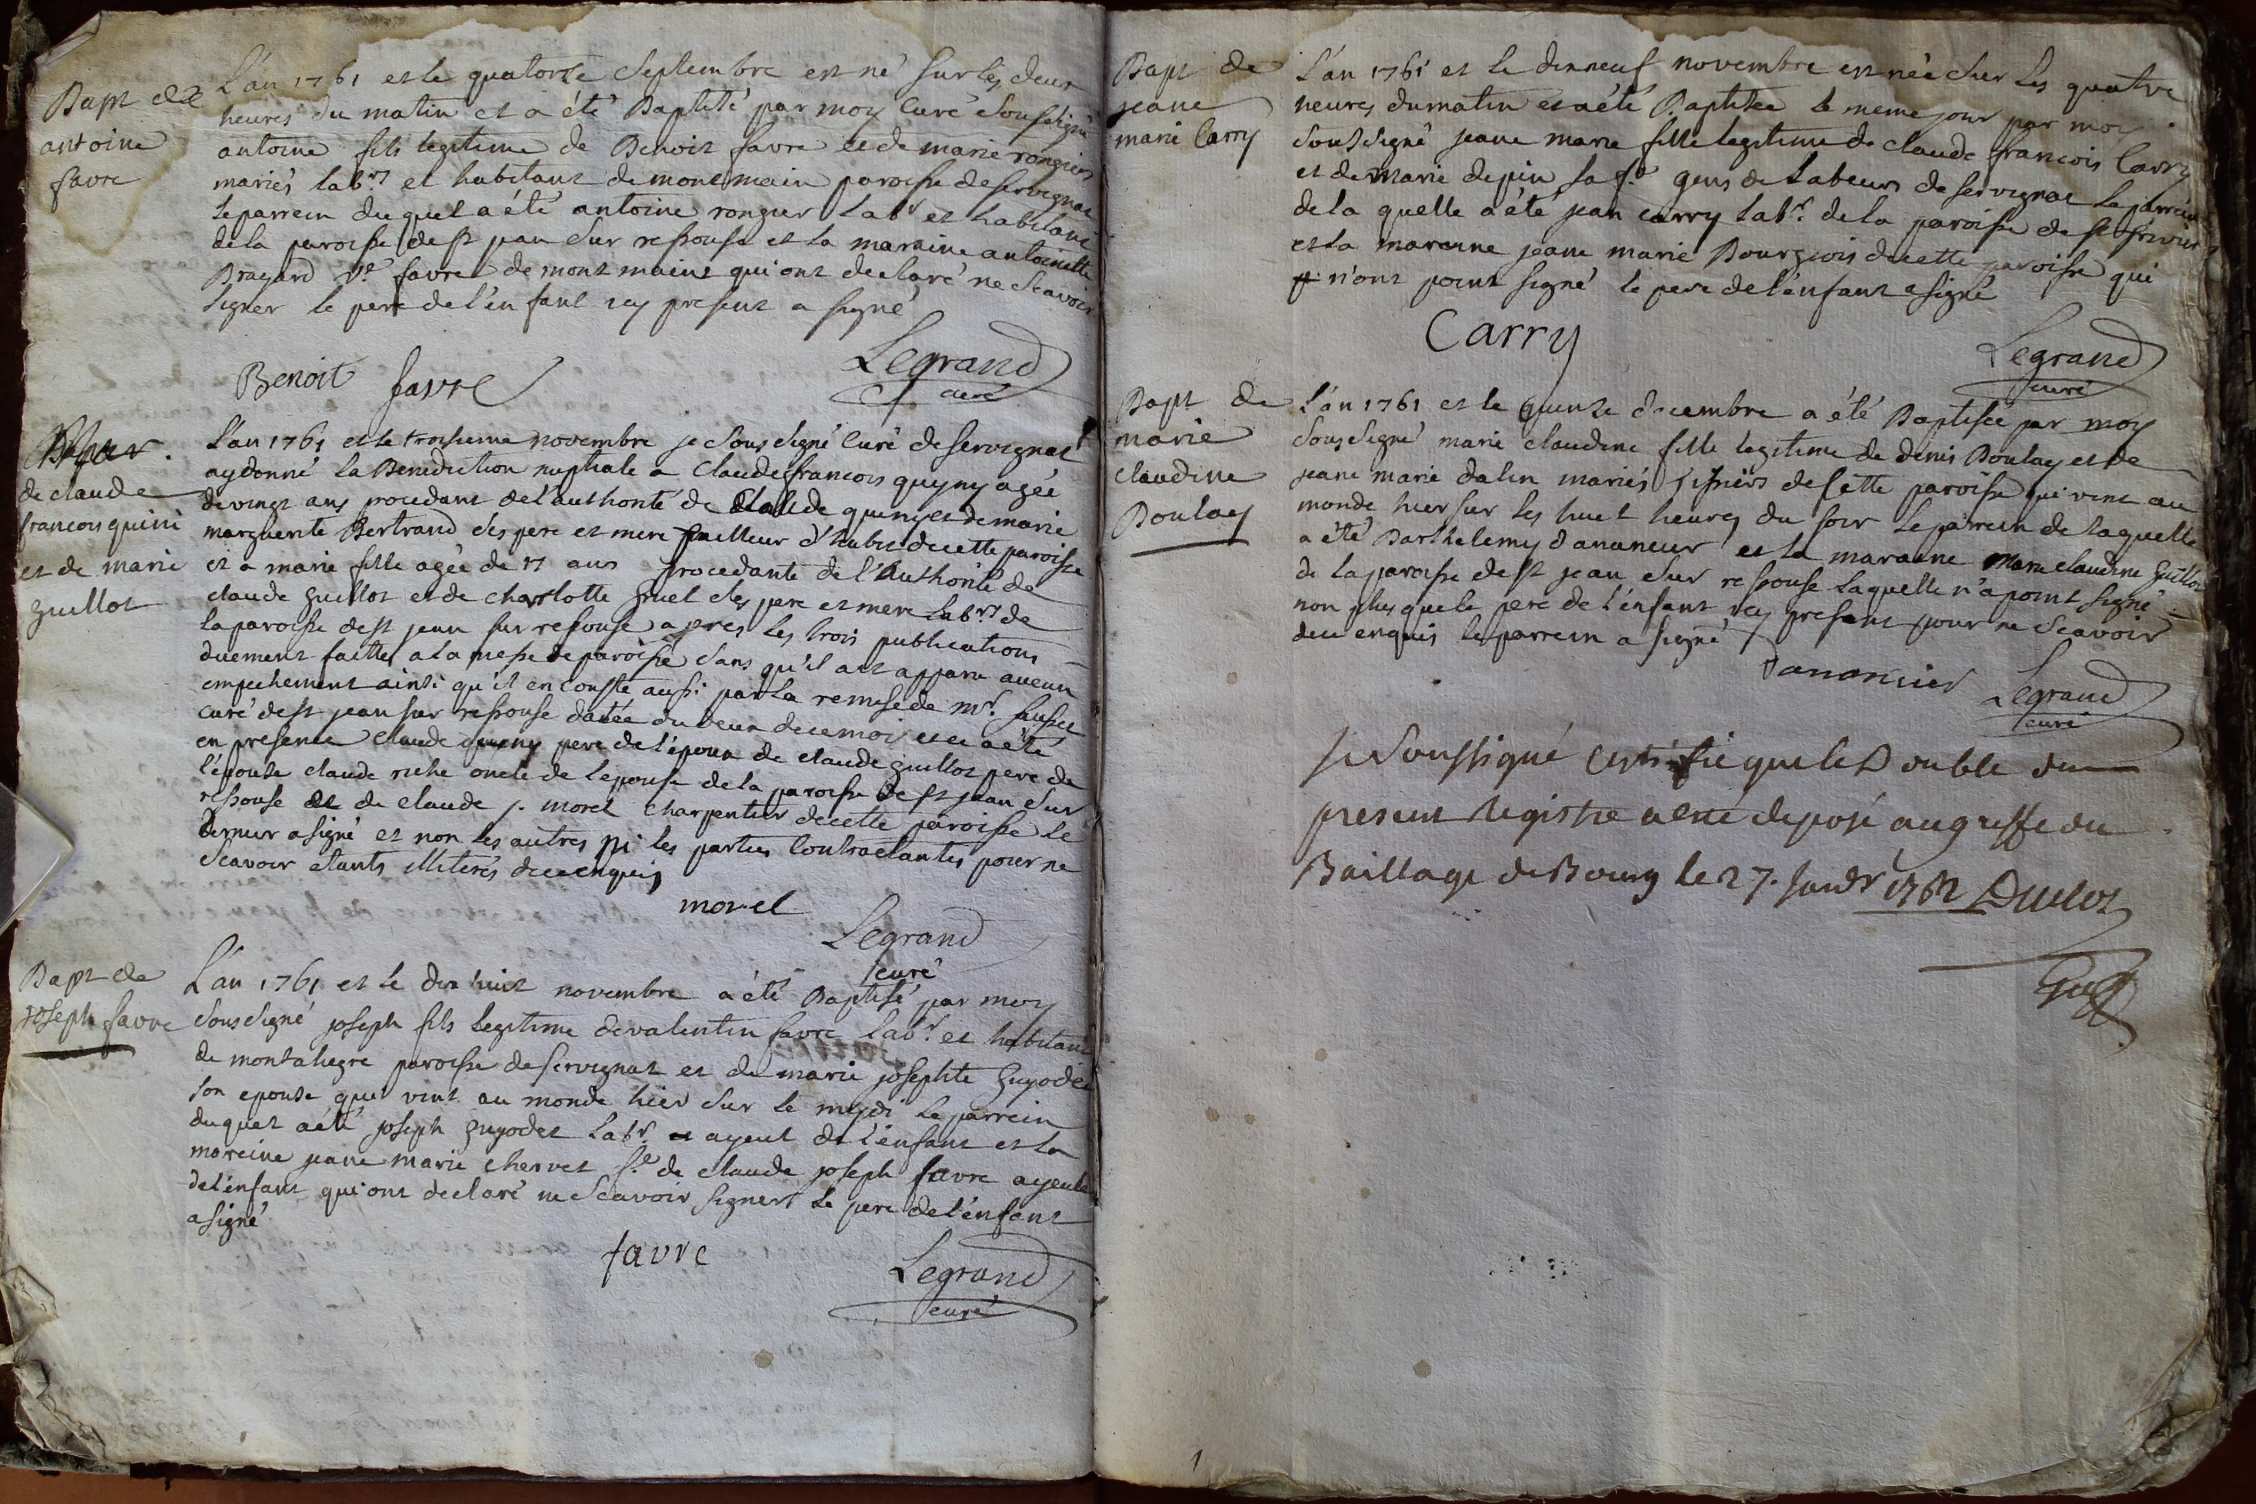 Bapt de
antoine
favre
L'an 1761 et le quatorze Septembre est né sur les deux
heures du matin et a été Baptisé par moy curé Soussigné
antoine fils legitime de Benoit favre et de marie rongier
mariés labrs et habitans de montmain paroisse de servignat
le parrein du quel a été antoine rongier labr et habitant
de la paroisse de st jean Sur ressouse et la maraine antoinette
Brazard ve favre de mont maint qui ont declaré ne Scavoir
signer le pere de l'enfant icy present a signé
Benoit favre
Legrand
curé
de claude
francois quini
et de marie
guillot
L'an 1761 et le troisieme novembre je Sous Signé Curé de Servignat
ay donné la Benediction nuptiale a Claude francois quyny agée
de vingt ans procedant de l'authorité de Claude quenyet de marie
marguerite Bertrand Ses pere et mere tailleur d'habit de cette paroisse
et a marie fille agée de 17 ans procedante de l'Authorité de
claude guillot et de charlotte gruel Ses pere et mere labrs de
la paroisse de st jean sur ressouse apres les trois publications
duement faittes a la messe de paroisse Sans qu'il ait apparu aucun
empechement ainsi qu'il en conste aussi par la remise de mr.
curé de st jean sur ressouse datée du deux de ce mois et ce a été
en presence claude queny pere de l'epoux de claude guillot pere de
l'epouse claude riche oncle de l'epouse de la paroisse de st jean Sur
ressouse et de claude j. morel charpentier de cette paroisse le
dernier a signé et non les autres ni les parties Contractantes pour ne
Scavoir étants illiterés de ce enquis
morel
Legrand
curé
Bapt de
joseph favre
L'an 1761 et le dix huit novembre a été Baptisé par moy
Sous Signé joseph fils legitime de valentin favre labr. et habitant
de montalegre paroisse de servignat et de marie josephte guyodet
son epouse qui vint au monde hier Sur le mydi le parrein
du quel a été joseph guyodet labr. et ayeul de l'enfant et la
mareine jeane marie chervet fe de claude joseph favre ayeule
de l'enfant qui ont declaré ne Scavoir signer le pere de l'enfant
a signé
favre
Legrand
curé
Bapt de
jeane
marie Carry
L'an 1761 et le dixneuf novembre est née Sur les quatre
heures du matin et a été Baptisée le meme jour par moy
Sous Signé jeane marie fille legitime de claude francois Carry
et de marie depin sa fe gens de Labeurs de servignat le parrein
de la quelle a été jean carry labr. de la paroisse de
et la maraine jeane marie Bourgeois de cette paroisse qui
n'ont point signé le pere de l'enfant a signé
Carry
Legrand
curé
Bapt de
marie
claudine
Boulay
L'an 1761 et le quinze decembre a été Baptisée par moy
Sous Signé marie claudine fille legitime de denis Boulay et de
jeane marie dalin mariés tissiers de cette paroisse qui vint au
monde hier sur les huit heures du soir le parrein de laquelle
a été Barthelemy dananneur et la maraine marie claudine guillot
de la paroisse de st jean Sur ressouse laquelle n'a point signé
non plus que le pere de l'enfant icy present pour ne Scavoir
de ce enquis le parrein a signé
Legrand
curé
Je Soussigné Certifie que le Double du
present Registre a esté deposé au greffe du
Baillage de Bourg le 27. Janvr 1762 Duclos